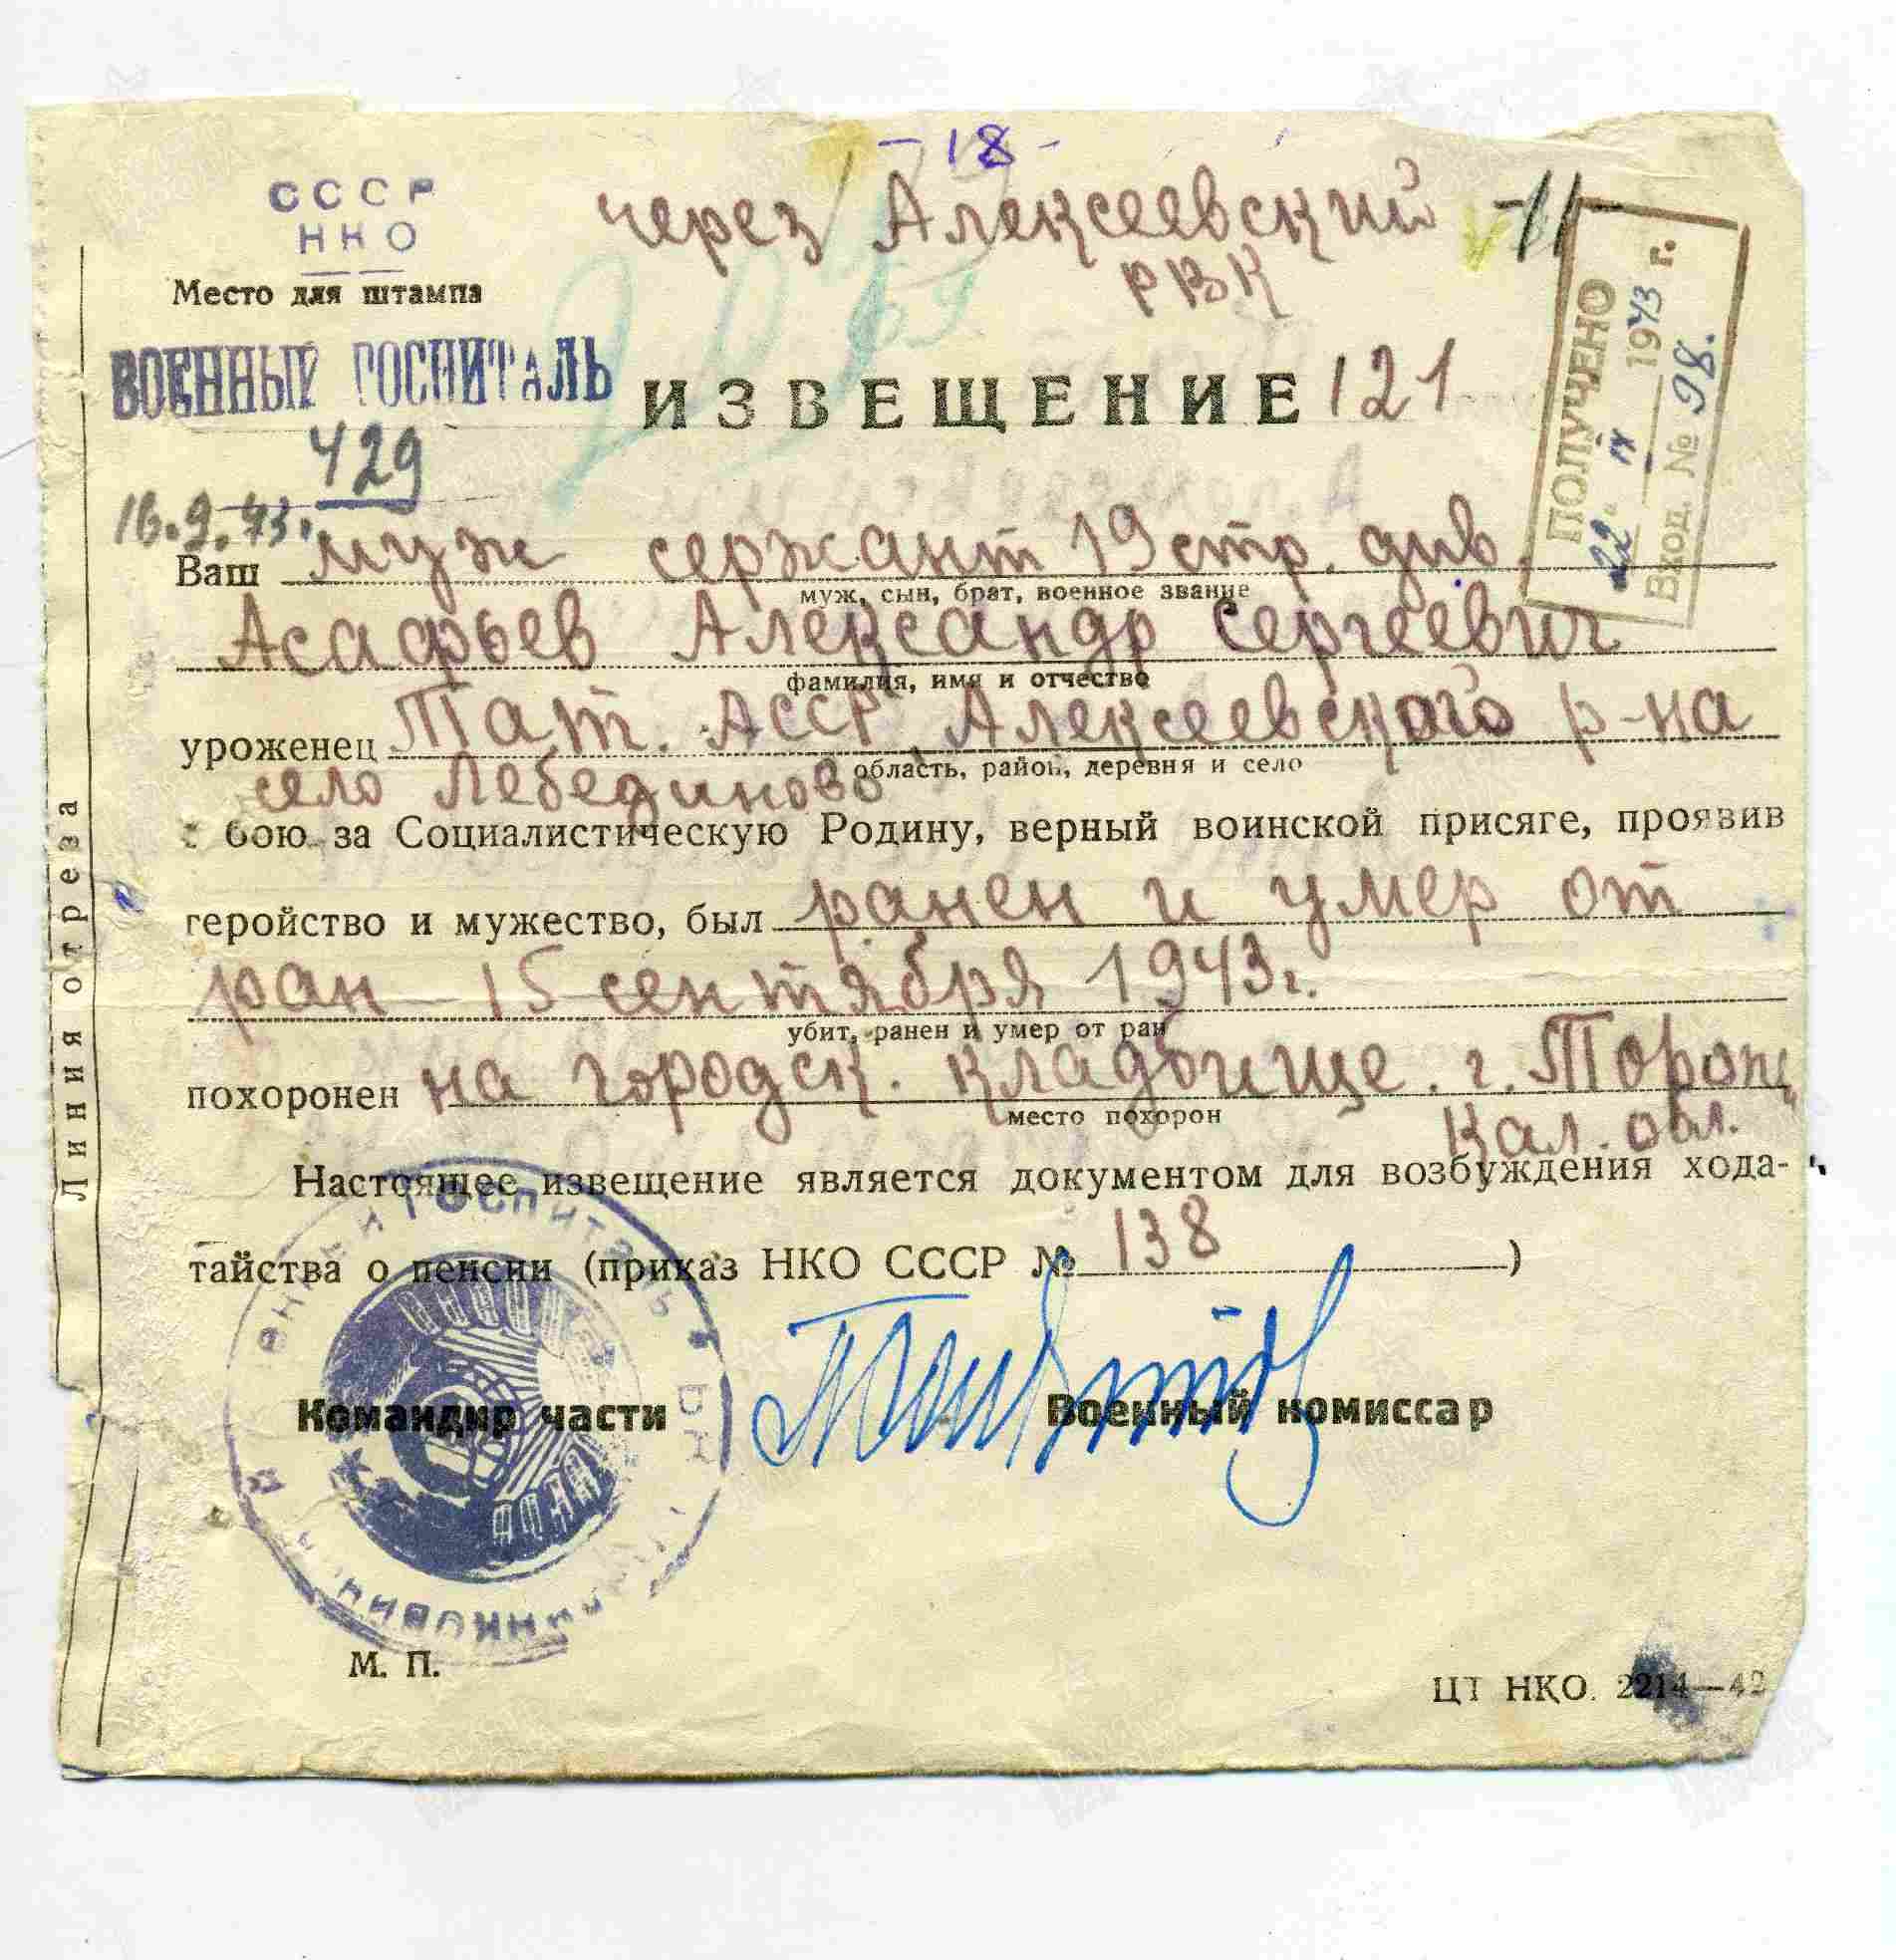 - 18 -
СССР
НКО
через Алексеевский
РВК
-11-
Место для штампа
ВОЕННЫЙ ГОСПИТАЛЬ
429
16.9.43.
ИЗВЕЩЕНИЕ 121
ПОЛУЧЕНО
"22" IX 1943 г.
Вход. № 98.
Ваш муж сержант 19 стр. див.
муж, сын, брат, военное звание
Асафьев Александр Сергеевич
фамилия, имя и отчество
уроженец Тат. АССР, Алексеевского р-на
область, район, деревня и село
село Лебедино
в бою за Социалистическую Родину, верный воинской присяге, проявив
геройство и мужество, был ранен и умер от
ран 15 сентября 1943г.
убит, ранен и умер от ран
похоронен на городск. кладбище. г. Тороп
место похорон
Кал. обл.
Настоящее извещение является документом для возбуждения хода-
тайства о пенсии (приказ НКО СССР № 138)
Командир части
Военный комиссар
М. П.
ЦТ НКО. 2214—42
Линия отреза